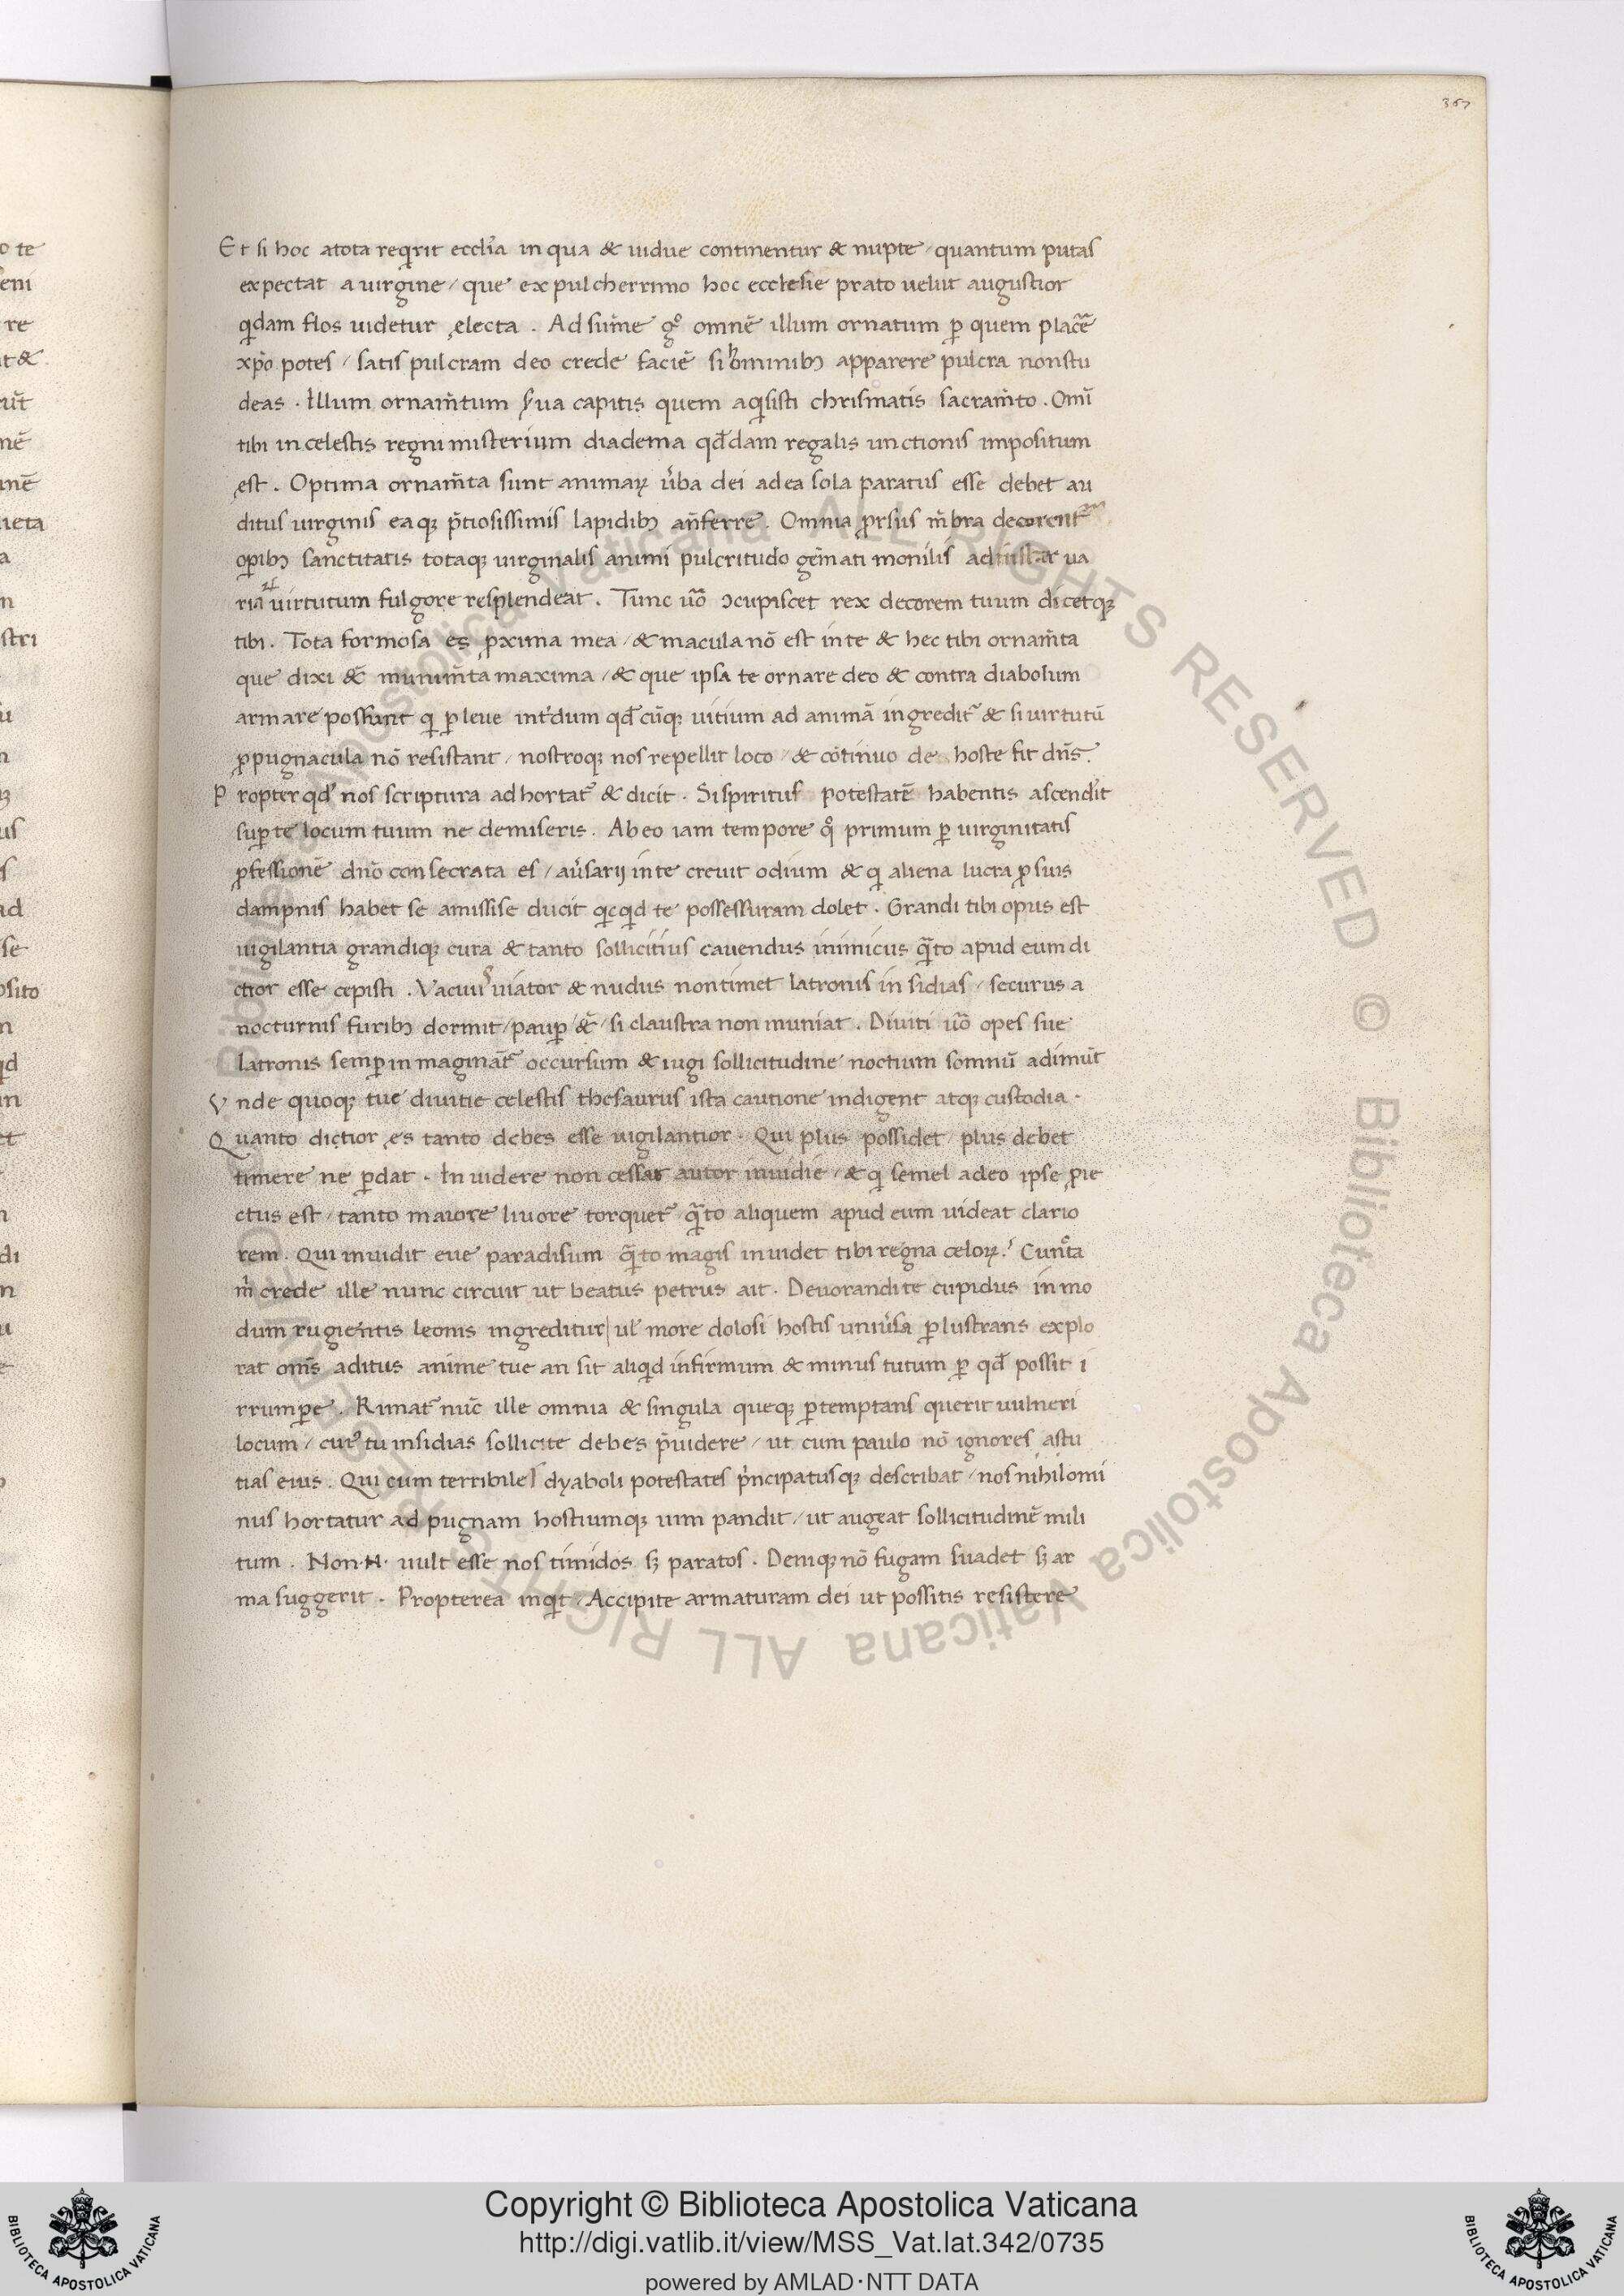 367
Et si hoc atota reqͥrit eccl̓ia in qua & uidue continentur & nupte / quantum putas
expectat a uirgine / que ex pulcherrimo hoc ecclesie prato uelut augustior
qͥdam flos uidetur ęlecta . Adsum̄e gͦ omnē illum ornatum ꝑ quem placē
xp̄o potes / satis pulcram deo crede faciē si hominibꝫ apparere pulcra nonstu
deas . Illum ornam̄tum ſ̓ua capitis quem aqͥsisti chrismatis sacram̄to . Om̄
tibi incelestis regni misterium diadema qd̄dam regalis unctionis impositum
ęst . Optima ornam̄ta sunt animaꝝ u̓ba dei adea sola paratus esse debet au
ditus uirginis eaqꝫ p̄tiosissimis lapidibꝫ an̄ferre . Omnia ꝓrsus m̄bra decorent᷑
oꝑibꝫ sanctitatis totaqꝫ uirginalis animi pulcritudo gem̄ati monilis adinstar ua
ria uirtutum fulgore resplendeat . Tunc uō ɔcupiscet rex decorem tuum dicetqꝫ
tibi . Tota formosa es ꝓxima mea / & macula nō est inte & hec tibi ornam̄ta
que dixi &̄ munim̄ta maxima / & que ipsa te ornare deo & contra diabolum
armare possunt qͥ ꝑ leue int̓dum qd̄ cūqꝫ uitium ad animā ingredit᷑ & si uirtutū
ꝓpugnacula nō resistant / nostroqꝫ nos repellit loco / & cōtinuo de hoste fit dn̄s .
Propter qd̓ nos scriptura adhortat᷑ & dicit . Sispiritus potestatē habentis ascend̓it
suꝑ te locum tuum ne demiseris . Abeo iam tempore qͦ primum ꝑ uirginitatis
ꝓfessionē dn̄o consecrata es / au̓sarij inte creuit odium & qͥ aliena lucra ꝓ suis
dampnis habet se amissise ducit qͥcqͥd te possessuram dolet . Grandi tibi opus est
uigilantia grandiqꝫ cura & tanto sollicitius cauendus inimicus qᷓto apud eum di
ctior esse cepisti . Vacuus uiator & nudus nontimet latronis insidias / securus a
nocturnis furibꝫ dormit / pauꝑ &̄ / si claustra non muniat . Diuiti uō opes sue
latronis semꝑ inmaginat᷑ occursum & iugi sollicitudine noctium somnū adimūt
Vnde quoqꝫ tue diuitie celestis thesaurus ista cautione indigent atqꝫ custodia .
Quanto dictior ęs tanto debes esse uigilantior . Qui plus possidet / plus debet
timere ne ꝑdat . Inuidere non cessat autor inuidie / & qͥ semel adeo ipse ꝓie
ctus est / tanto maiore liuore torquet᷑ / qᷓto aliquem apud eum uideat clario
rem . Qui inuidit eue paradisum qᷓto magis inuidet tibi regna celoꝝ . Cunc̄ta
m̓ crede ille nunc circuit ut beatus petrus ait . Deuorandi te cupidus inmo
dum rugientis leonis ingreditur / ul̓ more dolosi hostis uniu̓sa ꝑlustrans explo
rat om̄s aditus anime tue an sit aliqͥd infirmum & minus tutum ꝑ qd̄ possit i
rrumꝑe . Rimat᷑ nūc ille omnia & singula queqꝫ ꝑtemptans querit uulneri
locum / cui᷒ tu insidias sollicite debes p̄uidere / ut cum paulo nō ignores astu
tias eius . Qui cum terribiles dyaboli potestates pͥncipatusqꝫ describat / nos nihilomi
nus hortatur ad pugnam hostiumqꝫ uim pandit / ut augeat sollicitudinē mili
tum . Non .H. uult esse nos timidos sꝫ paratos . Deniqꝫ nō fugam suadet sꝫ ar
ma suggerit . Propterea inqͥt / Accipite armaturam dei ut possitis resistere
Copyright © Biblioteca Apostolica Vaticana
http://digi.vatlib.it/view/MSS_Vat.lat.342/0735
powered by AMLAD·NTT DATA
BIBLIOTECA APOSTOLICA VATICANA
BIBLIOTECA APOSTOLICA VATICANA